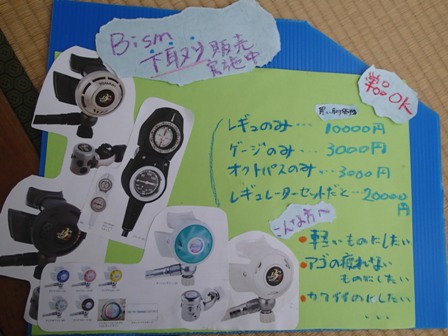 Bism
下取り販売
実施中
単品OK
レギュのみ…10000円
ゲージのみ…3000円
オクトパスのみ…3000円
レギュレーターセットだと…20000円
こんな方へ
•軽いものにしたい
•アゴの疲れない
ものにしたい
•カワイイのにしたい
...